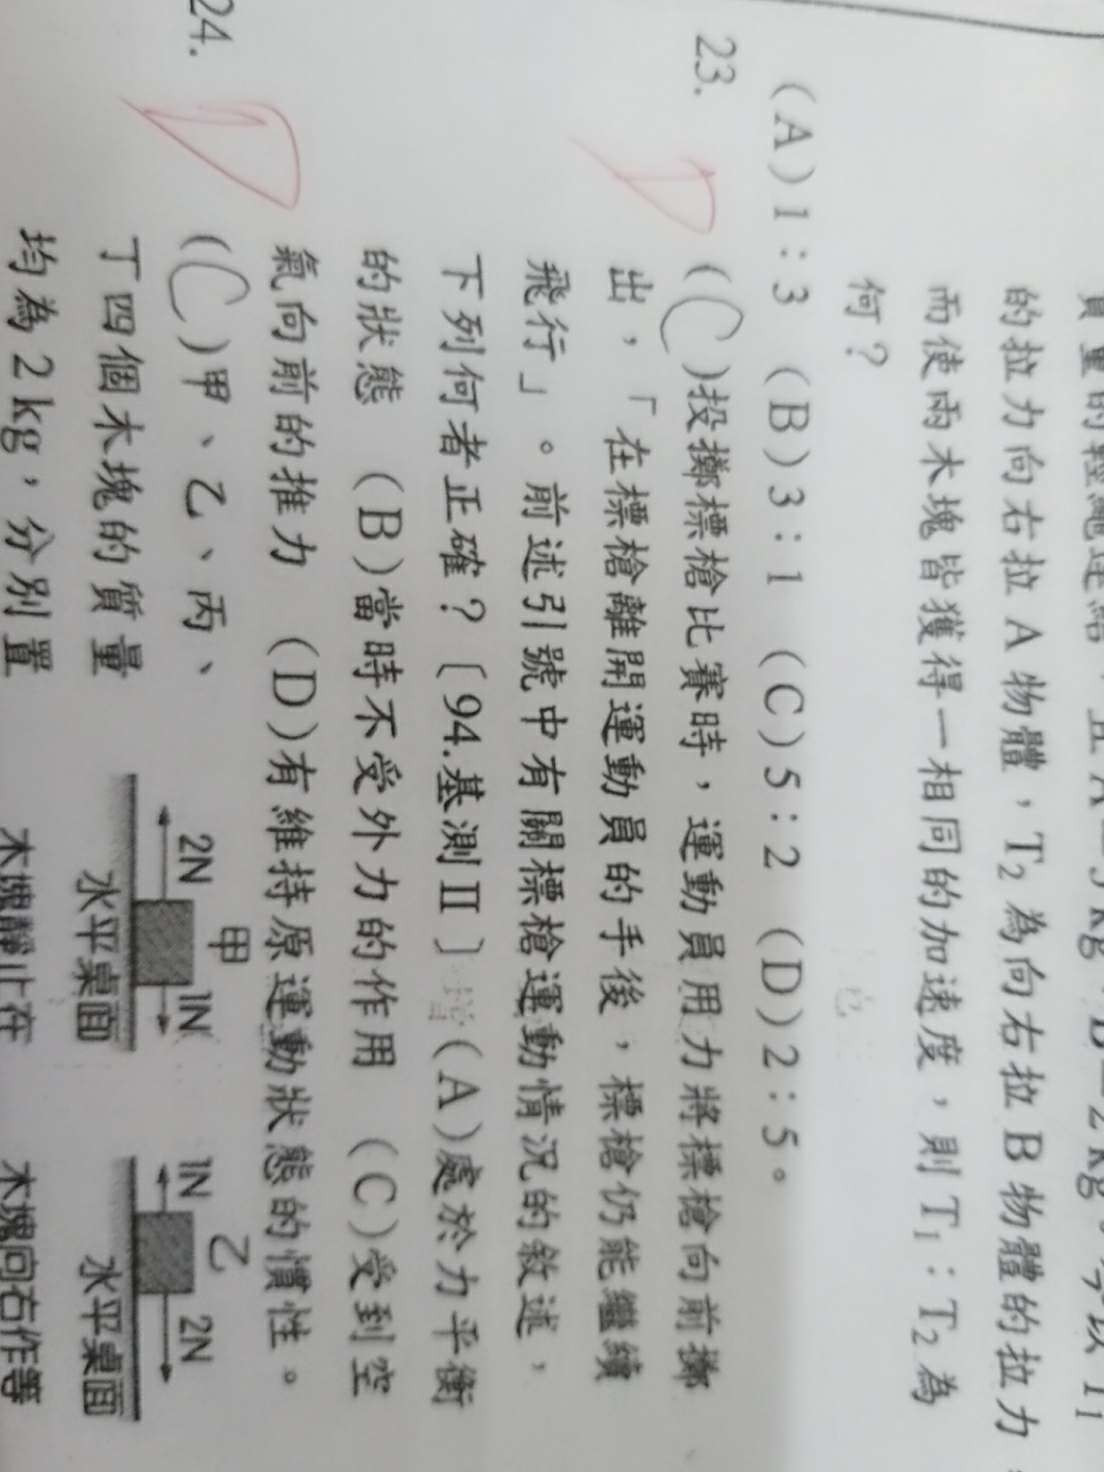 的拉力向右拉 A 物體，T₂ 為向右拉 B 物體的拉力
而使兩木塊皆獲得一相同的加速度，則 T₁：T₂ 為
何？
(A) 1：3 (B) 3：1 (C) 5：2 (D) 2：5。
23. (C)投擲標槍比賽時，運動員用力將標槍向前擲
出，「在標槍離開運動員的手後，標槍仍能繼續
飛行」。前述引號中有關標槍運動情況的敘述，
下列何者正確？〔94.基測Ⅱ〕 (A)處於力平衡
的狀態 (B)當時不受外力的作用 (C)受到空
氣向前的推力 (D)有維持原運動狀態的慣性。
24. (C)甲、乙、丙、
丁四個木塊的質量
均為 2 kg，分別置
甲
2N 1N
水平桌面
木塊靜止在
乙
1N 2N
水平桌面
木塊向右作等
D
D